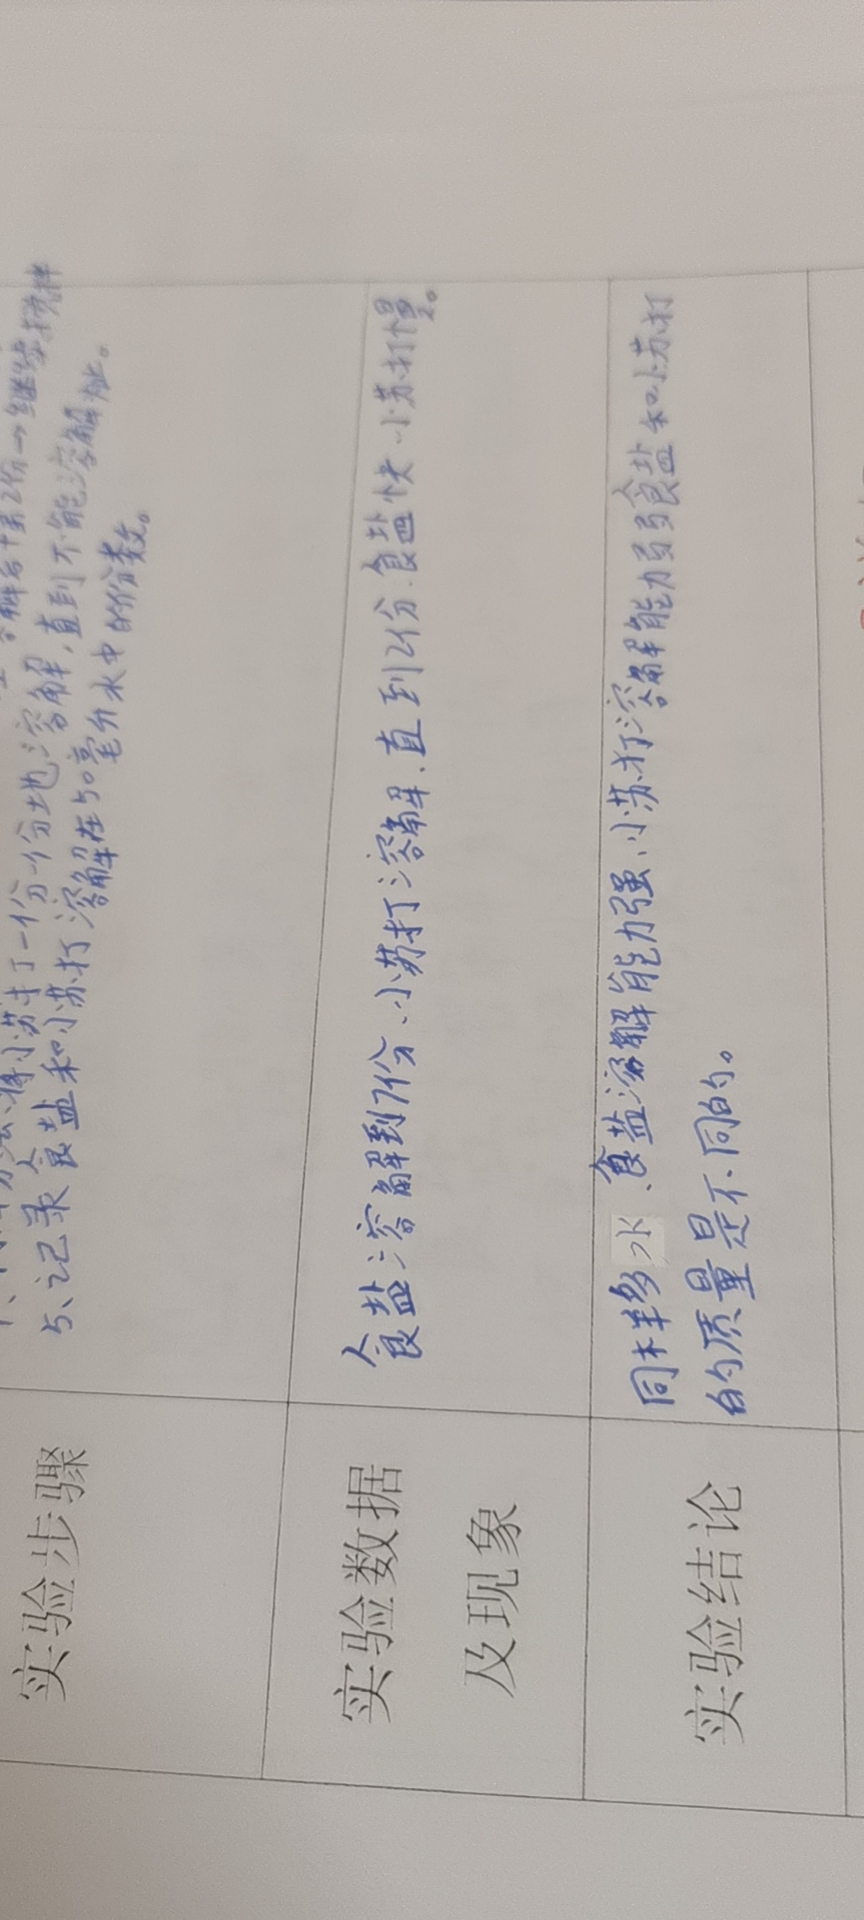 实验步骤
将小苏打一份一份地溶解,直到不能溶解
5、记录食盐和小苏打溶解在50毫升水中的份数。
实验数据
及现象
食盐溶解到7份、小苏打溶解、直到2份.食盐快 小苏打慢。
实验结论
同样多水、食盐溶解能力强、小苏打溶解能力弱食盐和小苏打
的质量是不同的。